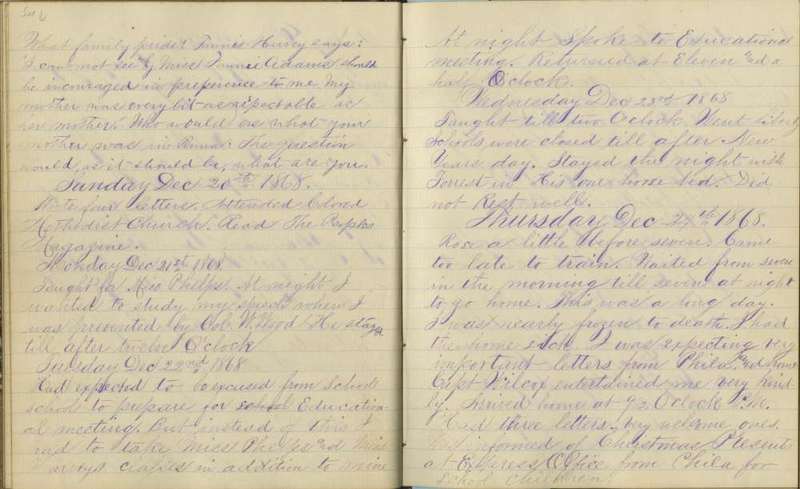 What family pride! Tinnie Harvey says:
"I can not see why Miss Tinnie Adams should
be incouraged in preference to me My
mother was every bit as respectable as
her mother." Who would ask what your
mother was in Penna? The question
would, as it should be, what are you.
Sunday Dec 20th 1868.
Wrote four letters. Attended Colored
Methodist Church. Read The Peoples
Magazine.
Monday Dec 21st 1868
Taught for Miss Phelps. At night I
wanted to study my speech when I
was prevented by Col. W. Hoyd He stayed
till after twelve O clock
Tuesday Dec 22nd 1868
Had expected to be excused from school
school to prepare for school Education
al meeting. But instead of this I
had to take Miss Phelps and Miss
Harveys classes in addition to mine
At night Spoke to Educational
meeting. Returned at Eleven and a
half O'clock.
Wednesday Dec 23rd 1868
Taught till two O clock. Went
Schools were closed till after New
Years day. Stayed the night with
Forrest in His one horse bed. Did
not Rest well.
Thursday Dec 24th 1868.
Rose a little before seven. Came
too late to train. Waited from seven
in the morning till seven at night
to go home. This was a long day.
I was nearly frozen to death. I had
the home sick. I was expecting very
important letters from Phila. and
Capt Wilcox entertained me very kind
ly. Arrived home at 9½ O clock P.M.
Had three letters. Very welcome ones.
Was informed of Christmas Present
at Express Office from Phila for
School children